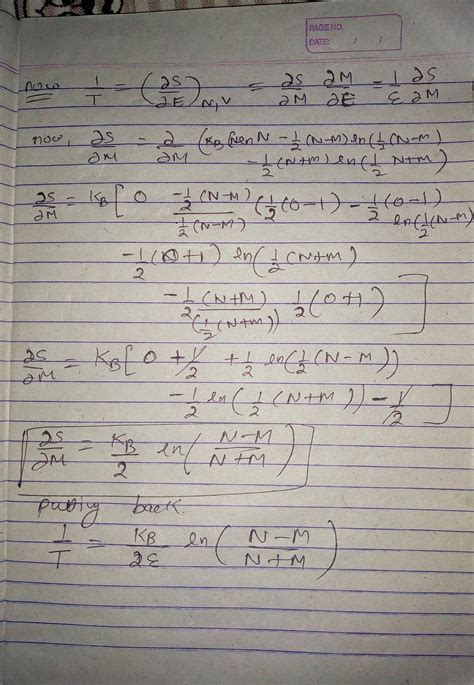 PAGE NO.
DATE: / /
now 1/T = (∂S/∂E)_N,V = ∂S/∂M ∂M/∂E = 1/ε ∂S/∂M
now, ∂S/∂M = ∂/∂M (KB(NlnN - 1/2(N-M)ln(1/2(N-M)
- 1/2(N+M) ln(1/2 N+M)
∂S/∂M = KB[ 0 -1/2(N-M)/1/2(N-M) (1/2(0-1) - 1/2(0-1) ln(1/2(N-M)
-1/2(0+1) ln(1/2(N+M)
-1/2(N+M)/(1/2(N+M)) 1/2(0+1) ]
∂S/∂M = KB[ 0 + 1/2 + 1/2 ln(1/2(N-M))
- 1/2 ln(1/2(N+M)) - 1/2 ]
∂S/∂M = KB/2 ln(N-M/N+M)
back
1/T = KB/2ε ln(N-M/N+M)